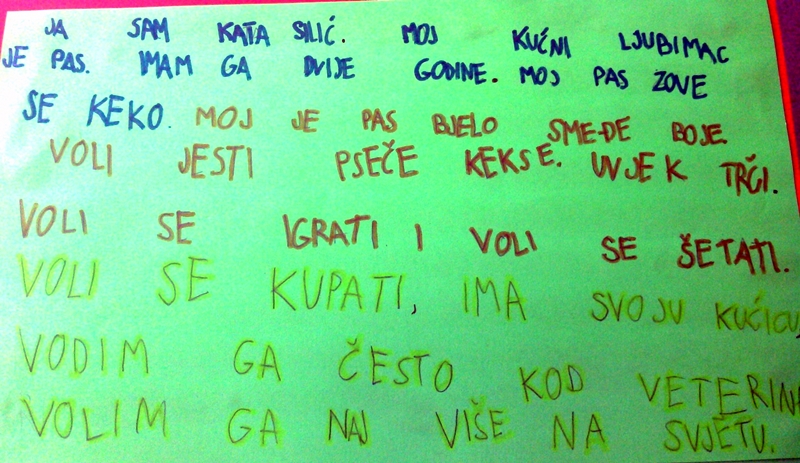 JA SAM KATA SILIĆ. MOJ KUĆNI LJUBIMAC
JE PAS. IMAM GA DVIJE GODINE. MOJ PAS ZOVE
SE KEKO. MOJ JE PAS BJELO SMEĐE BOJE.
VOLI JESTI PSEČE KEKSE. UVJEK TRČI.
VOLI SE IGRATI I VOLI SE ŠETATI.
VOLI SE KUPATI, IMA SVOJU KUĆICU,
VODIM GA ČESTO KOD VETERIN
VOLIM GA NAJ VIŠE NA SVJETU.